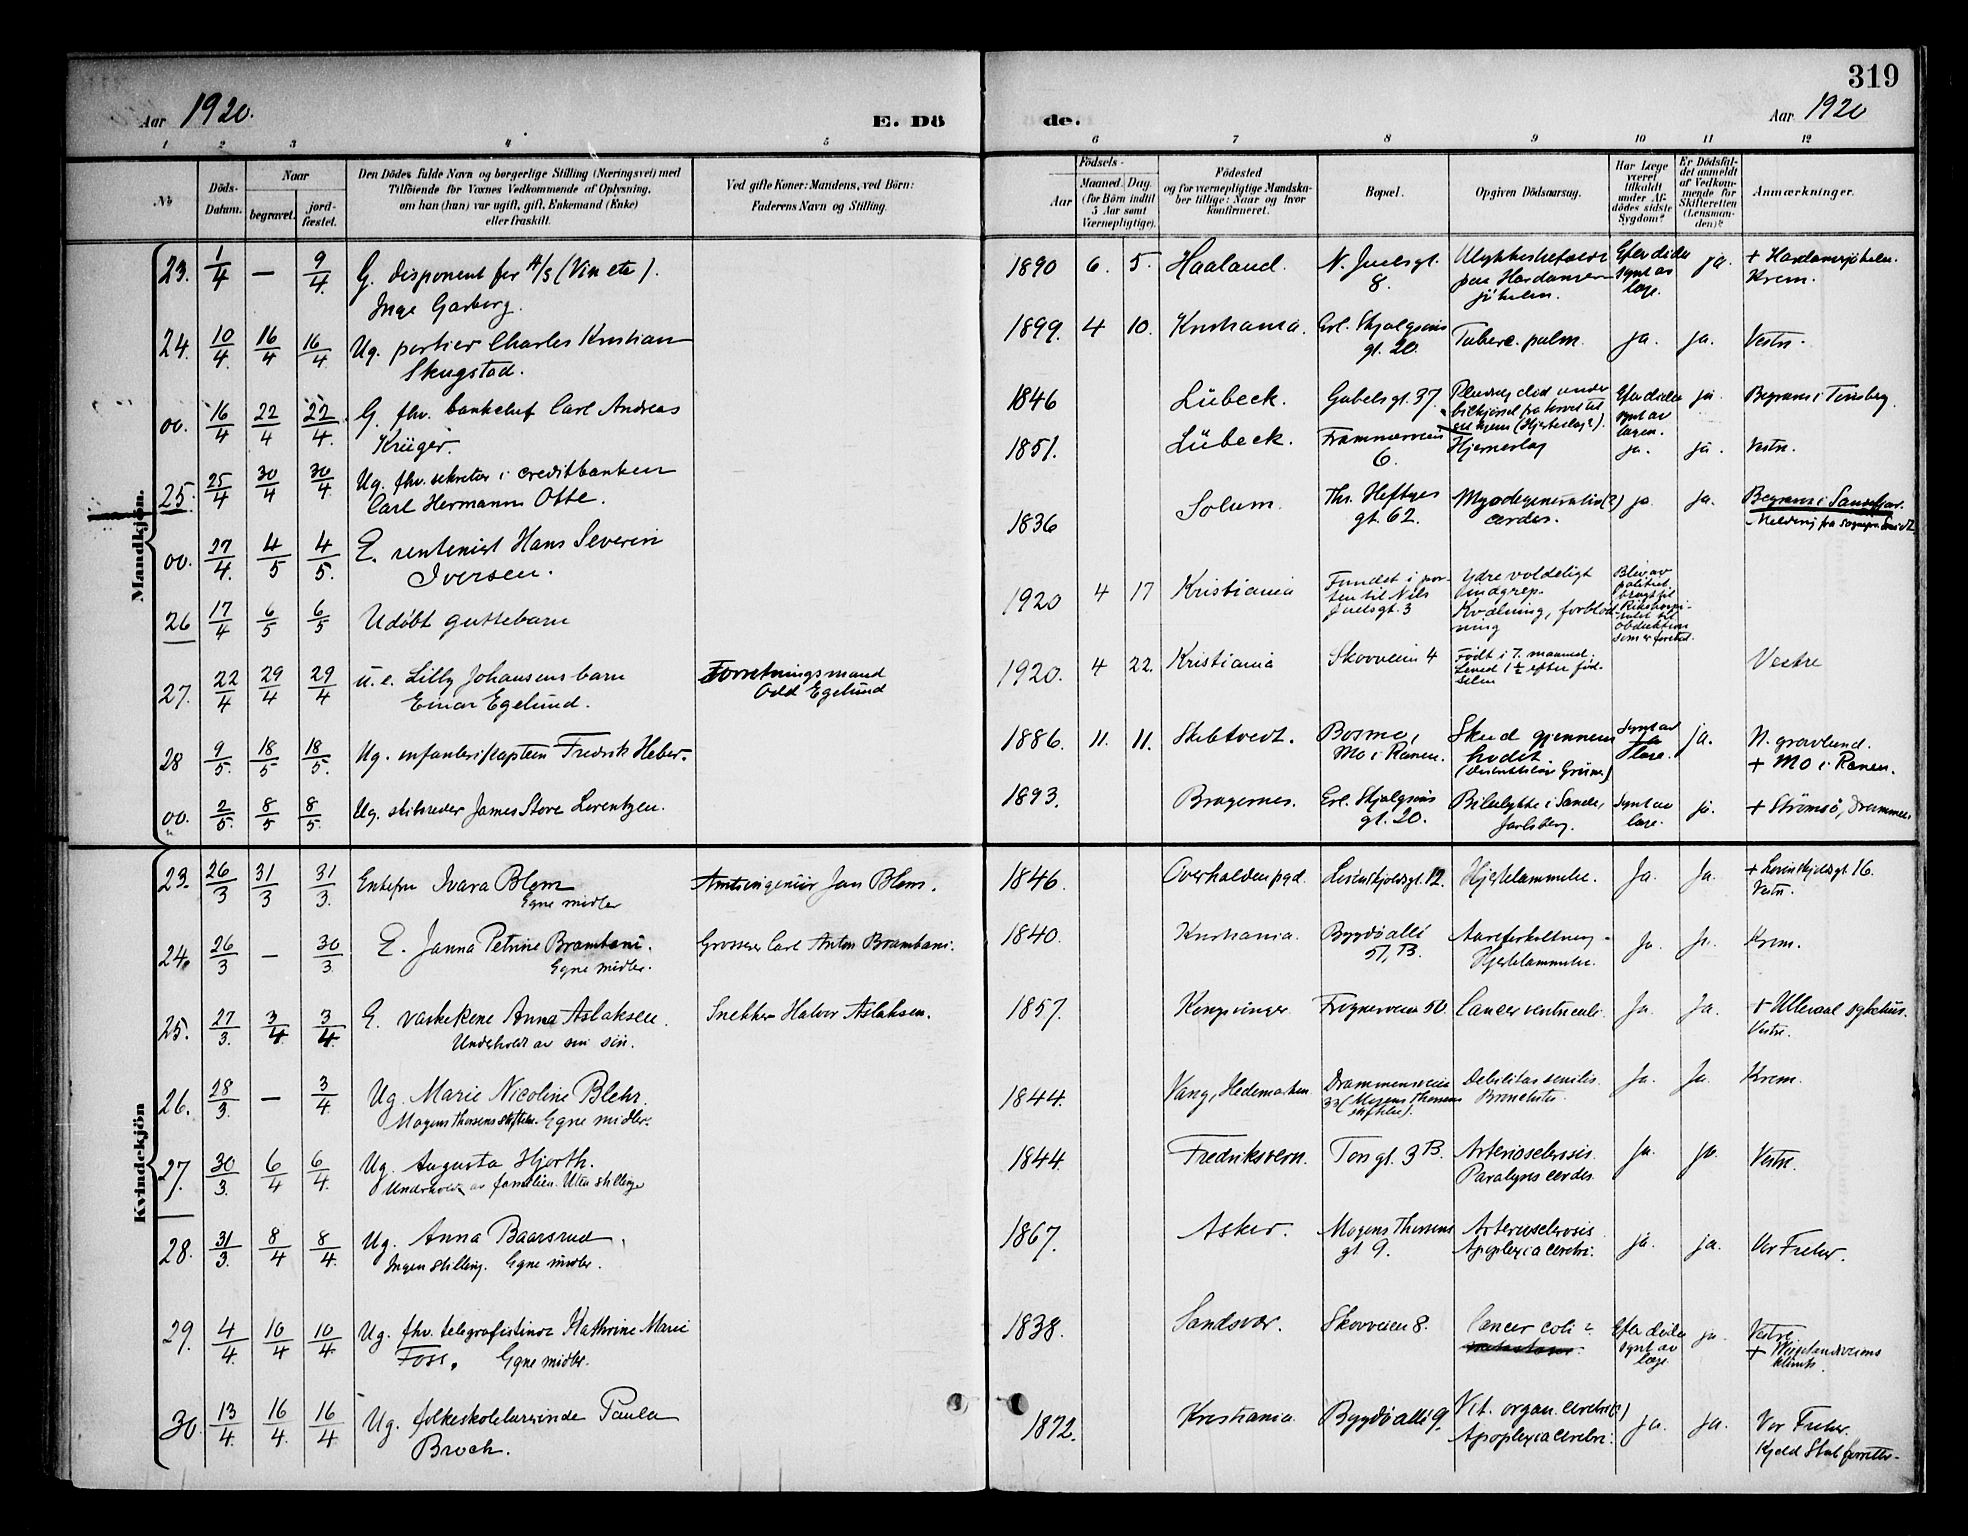 319
Aar 1920.
E. Dö
de.
Aar 1920
1 2 3 4 5 6 7 8 9 10 11 12
No
Döds-
Datum.
Naar
begravet.
jord-
fæstet.
Den Dödes fulde Navn og borgerlige Stilling (Næringsvei) med
Tilföiende for Voxnes Vedkommende af Oplysning,
om han (hun) var ugift, gift, Enkemand (Enke)
eller fraskilt.
Ved gifte Koner: Mandens, ved Börn:
Faderens Navn og Stilling.
Födsels-
Aar
Maaned. Dag.
(for Börn indtil
5 Aar samt
Værnepligtige).
Födested
og for værnepligtige Mandska-
ber tillige: Naar og hvor
konfirmeret.
Bopæl.
Opgiven Dödsaarsag.
Har Læge
været
tilkaldt
under Af-
dödes sidste
Sygdom?
Er Dödsfal-
det anmeldt
af Vedkom-
mende for
Skifteretten
(Lensman-
den)?
Anmærkninger.
Mandkjön.
23. 1/4 — 9/4 G. disponent for A/S (Vin etc).
Inge Garborg.
1890 6. 5. Haaland. N. Juelsgt.
8.
paa Hardanger-
jökelen.
Efter döden
synt av
læge.
ja. + Hardangerjökelen.
Krem.
24. 10/4 16/4 16/4 Ug. portier Charles Kristian
Skugstad.
1899. 4 10. Kristiania. Erl. Skjalgsøns
gt. 20. Tuberc. pulm. ja. ja. Vestre.
00. 16/4 22/4 22/4. G. fhv. bankchef Carl Andreas
Krüger.
1846 Lübeck. Gabelsgt. 37 død under
(Hjerteslag?).
Efter döden
synt av
lægen.
ja Begraves i Tønsberg.
25. 25/4 30/4 30/4 Ug. fhv. sekretær i creditbanken
Carl Hermann Otte.
1851. Lübeck. Frammnesveien
6. Hjerneslag ja. ja. Vestre.
00. 27/4. 4/5 4/5. E. rentenist Hans Severin
Iversen.
1836 Solum. Ths. Heftyes
gt. 62. Myodegeneratio(?)
cordis. ja ja. Begraves i Sandefjord.
Melding fra sogneprest
26 17/4 6/5 6/5 Udöbt guttebarn
1920 4 17 Kristiania Fundet i por-
ten til Nils
Juelsgt. 3 Ydre voldeligt
indgrep.
Kvælning, forblød-
ning
Blev av
politiet
bragt til
Rikshospi-
talet til
obduktion
som er foretat.
27. 22/4 29/4 29/4 u. e. Lilly Johansens barn
Einar Egelund. Forretningsmand
Odd Egelund
1920. 4 22. Kristiania Skovveien 4 Født i 7. maaned.
Leved 1½ efter fød-
selen Vestre
28 9/5. 18/5 18/5. Ug. infanterikaptein Fredrik Heber.
1886. 11. 11. Skibtvedt. Bosmo,
Mo i Ranen. Skud gjennem
hodet
Synt av
læge. ja. N. gravlund.
+ Mo i Ranen.
00. 2/5. 8/5 8/5. Ug. skibsreder James Store Lorentzen.
1893. Bragernes. Erl. Skjalgsøns
gt. 20. Bilulykke i Sande,
Jarlsberg. Synt av
læge. ja. + Strømsø, Drammen
Kvindekjön
23. 26/3 31/3 31/3. Enkefru Ivara Blom
Egne midler Amtsingeniør Jan Blom.
1846. Overhalden pgd. Løvenskjoldsgt. 12. Hjertelammelse. Ja. Ja. + Løvenskjoldsgt. 16.
Vestre.
24. 26/3 — 30/3 E. Janna Petrine Brambani.
Egne midler. Grosserer Carl Anton Brambani.
1840. Kristiania. Bygdö allé
51, B. Aareforkalkning -
Hjertelammelse. Ja. Ja. Krem.
25. 27/3. 3/4 3/4. E. vaskekone Anna Aslaksen.
Underholdt av sin søn. Snekker Halvor Aslaksen.
1857. Kongsvinger. Frognerveien 50. Cancer ventriculi. Ja. Ja. + Ullevaal sykehus.
Vestre.
26. 28/3. — 3/4 Ug. Marie Nicoline Blehr.
Mogens Thorsens stiftelse. Egne midler.
1844. Vang, Hedemarken. Drammensveien
33 (Mogens Thorsens
stiftelse). Debilitas senilis.
Bronchitis Ja. Ja. Krem.
27. 30/3 6/4 6/4. Ug. Augusta Hjorth.
Underholdt av familien. Uten stilling
1844. Fredriksvern. Ton gt. 3 B. Arteriosclerosis.
Paralysis cordis. Ja. ja. Vestre.
28. 31/3. 8/4 8/4. Ug. Anna Baarsrud.
Ingen stilling. Egne midler.
1867. Asker. Mogens Thorsens
gt 9. Arteriosclerosis
Apoplexia cerebri. ja. ja. Vor Frelser.
29. 4/4. 10/4 10/4 Ug. fhv. telegrafistinde Kathrine Marie
Foss. Egne midler.
1838. Sandsvær. Skovveien 8. Cancer coli?
Efter döden
synt av
læge ja. Vestre
30. 13/4. 16/4. 16/4 Ug. folkeskolelærerinde Paula
Broch.
1872. Kristiania. Bygdö allé 9. Vit. organ. cerebri(?)
Apoplexia cerebri. ja. ja. Vor Frelser.
Kjeld Stub forretter.